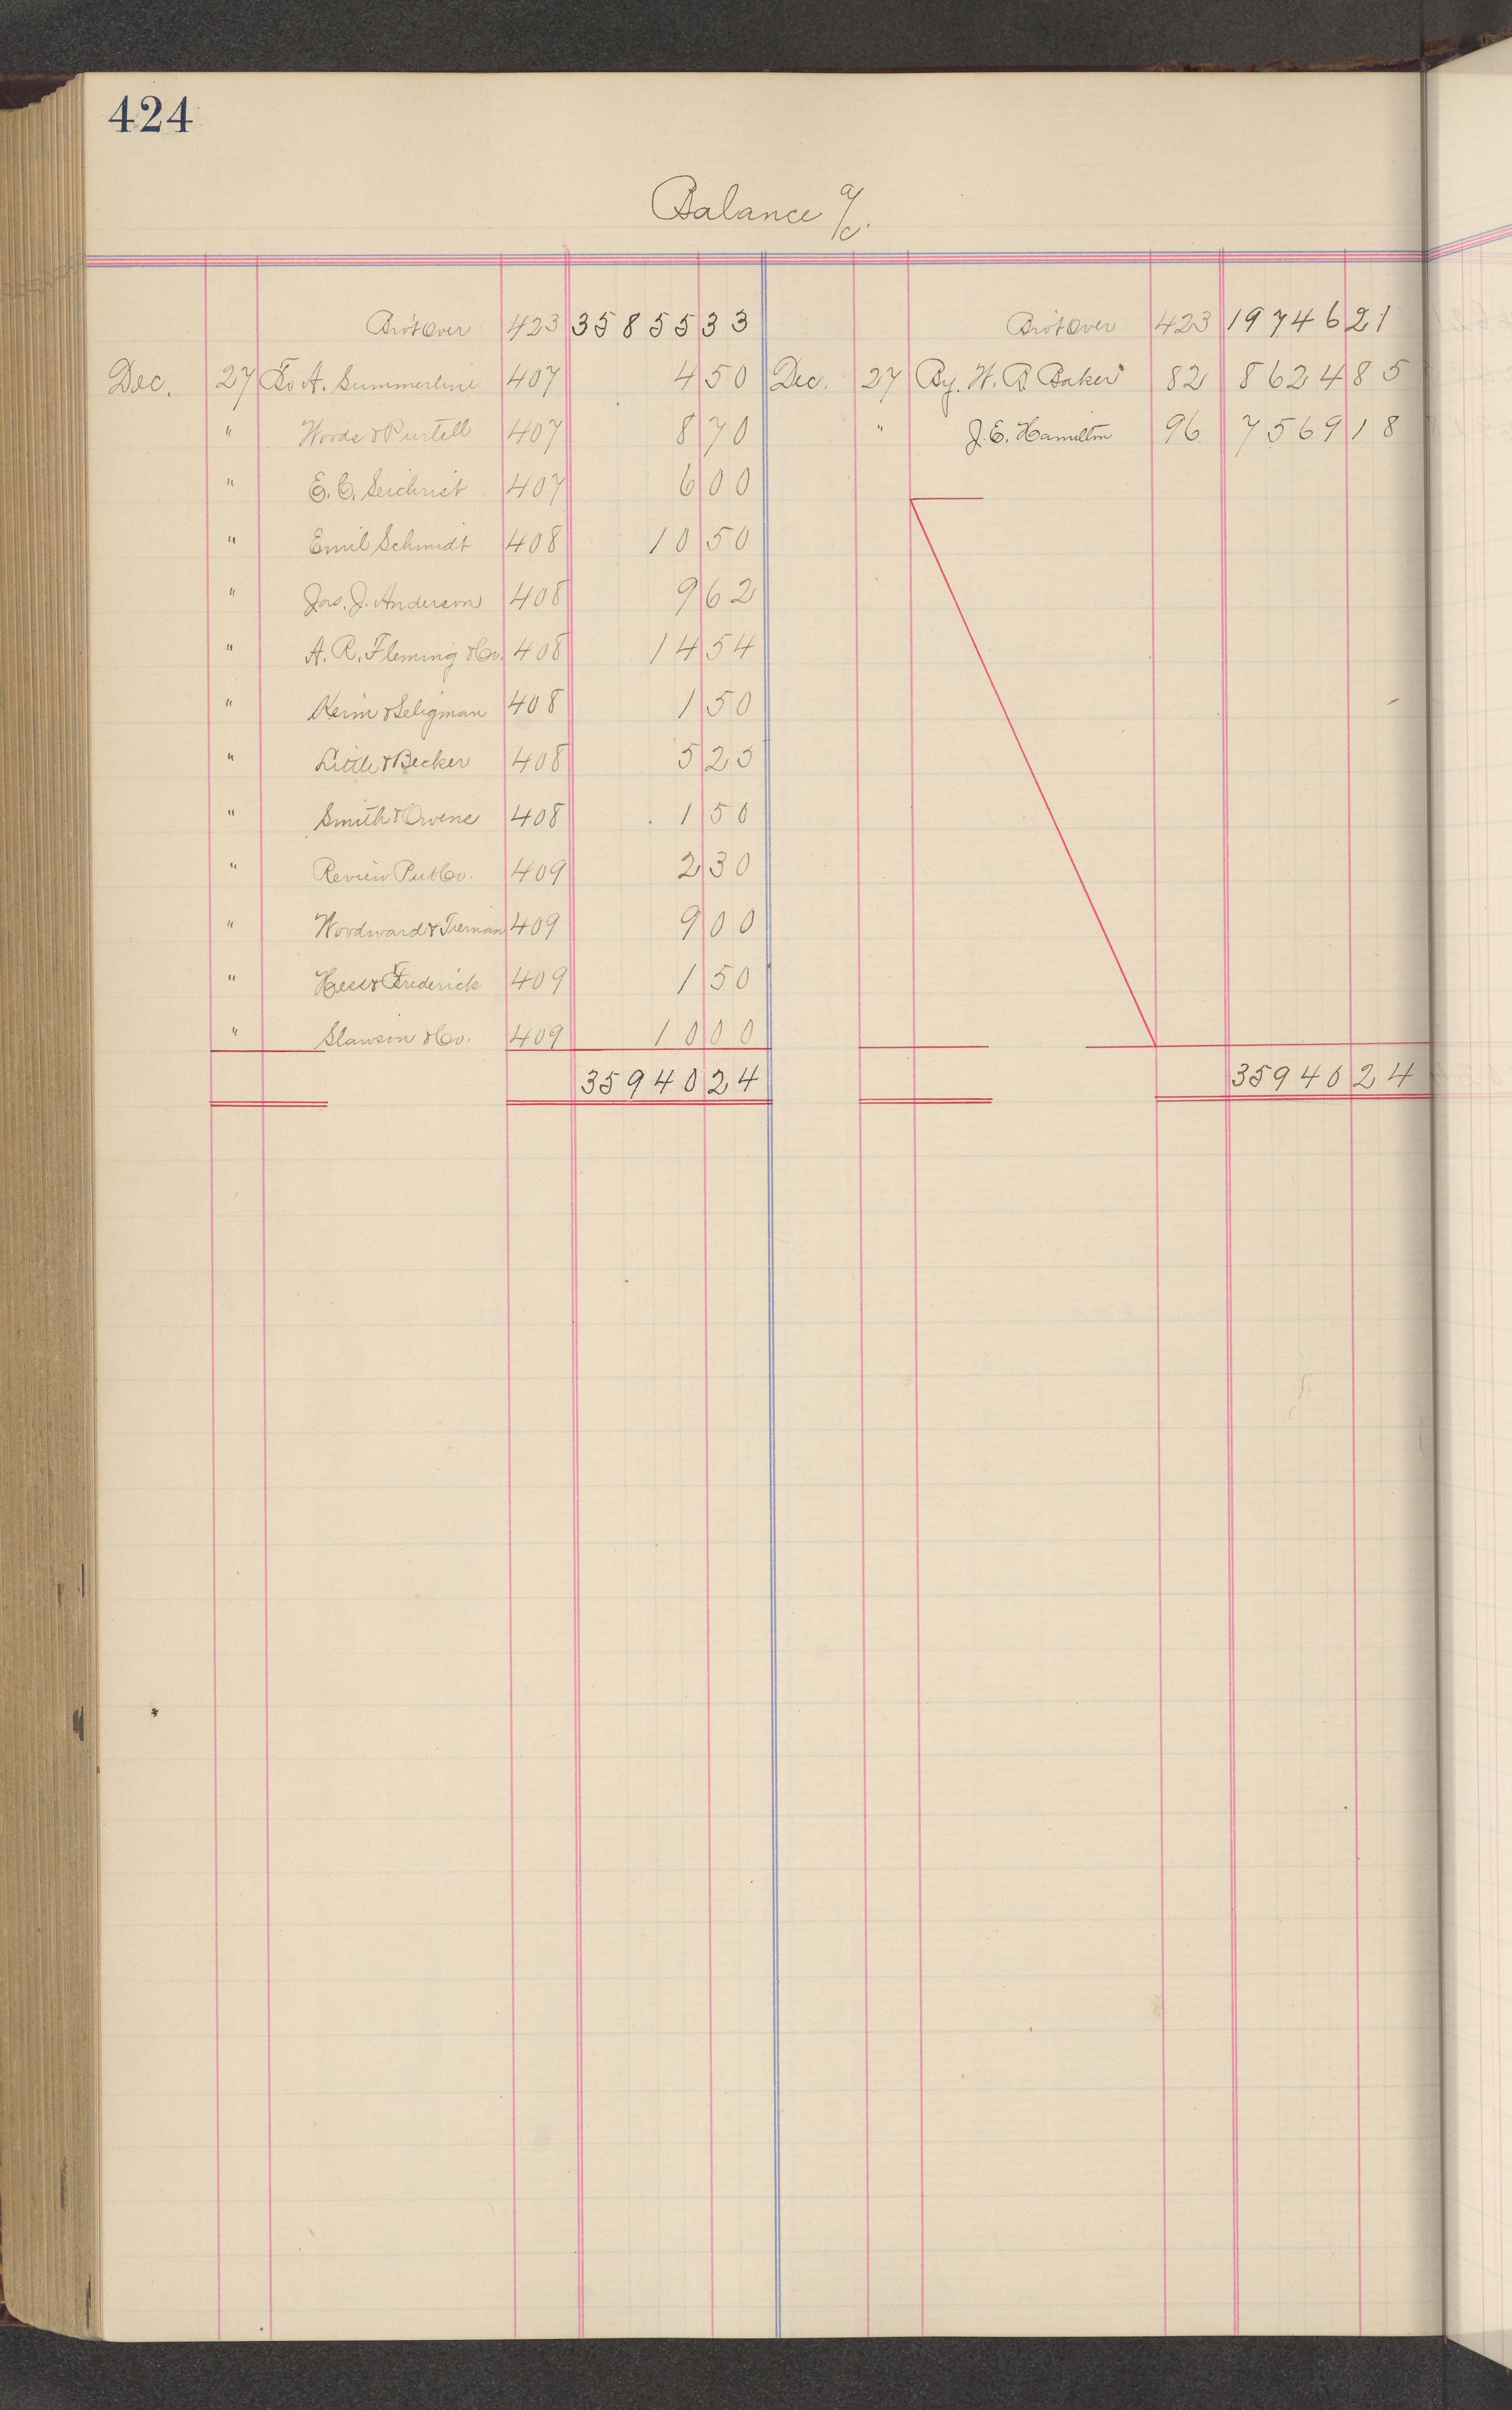 424
Balance a/c.
Bro't Over 423 35855 33 Bro't Over 423 19746 21
Dec. 27 To A. Summerline 407 4 50 Dec. 27 By. H. B Baker 82 8624 85
" Woods & Purtell 407 8 70 " J. E. Hamilton 96 7569 18
" E. C. Seichrist 407 6 00
" Emil Schmidt 408 10 50
" Jas. J. Anderson 408 9 62
" A. R. Fleming & Co. 408 14 54
" Keim & Seligman 408 1 50
" Little & Becker 408 5 25
" Smith & Owens 408 1 50
" Review Pub Co. 409 2 30
" Woodward & Tiernan 409 9 00
" Hess & Frederick 409 1 50
" Slawson & Co. 409 10 00
35940 24 35940 24